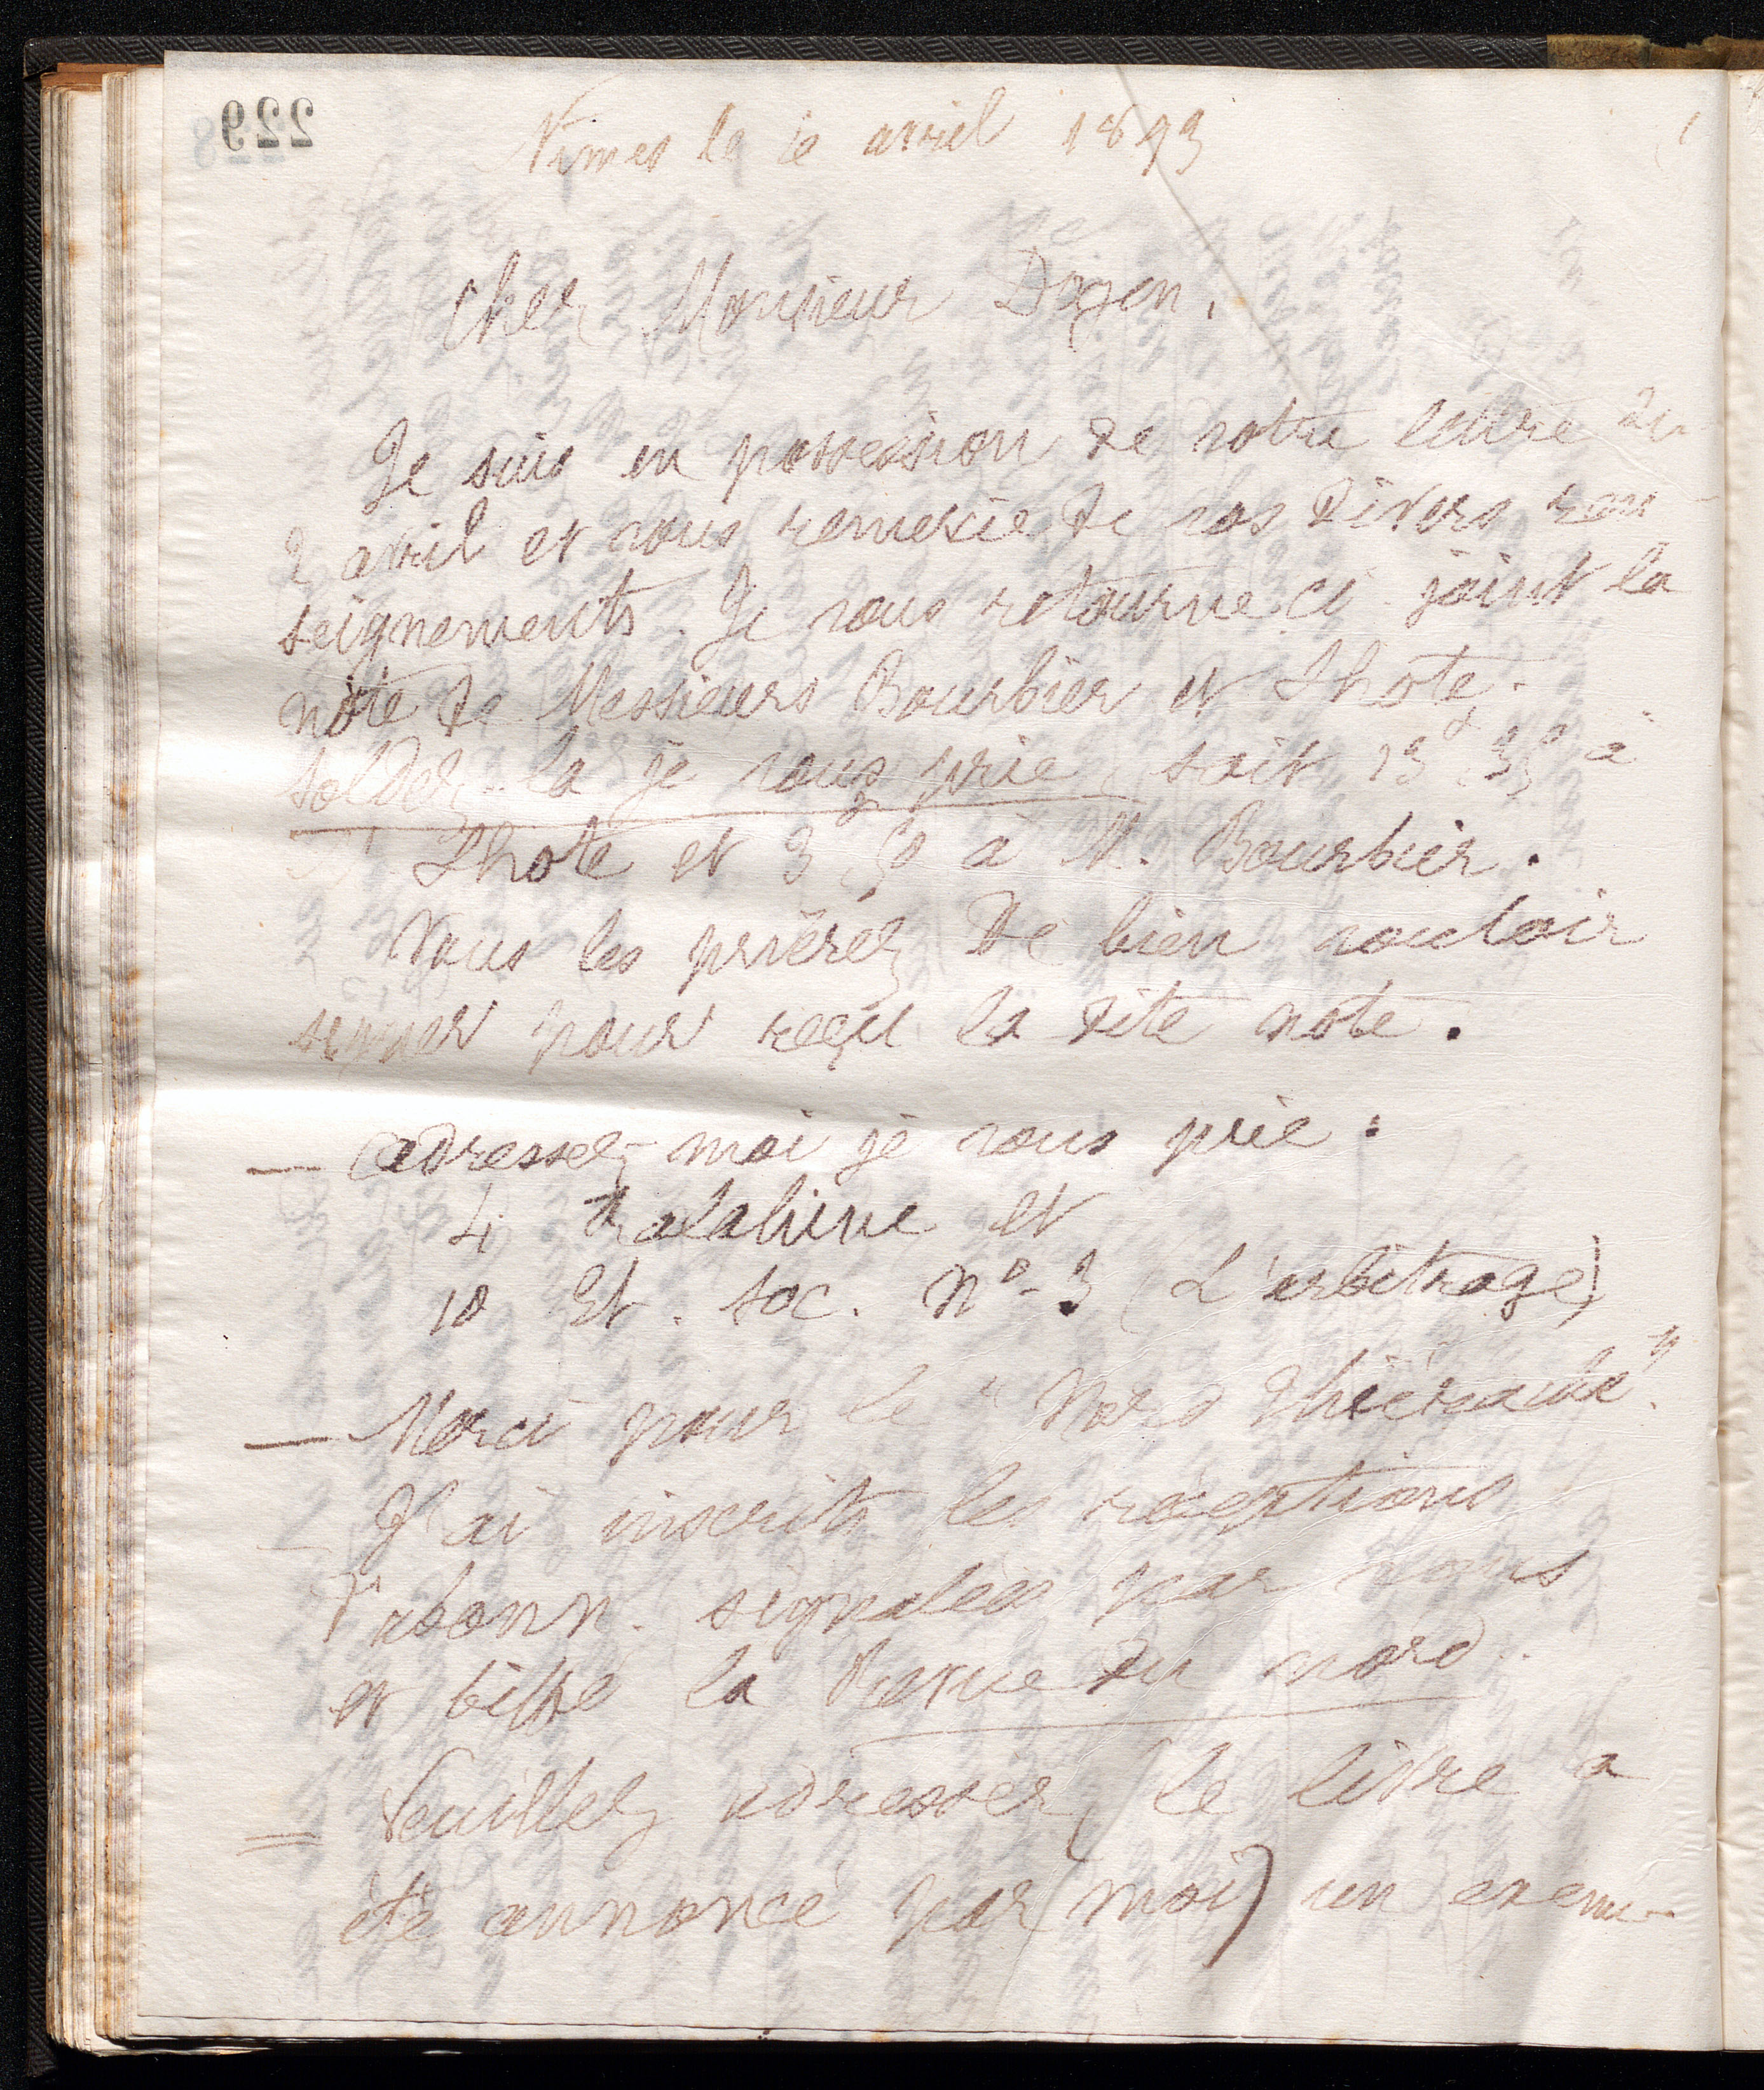 229
Nimes le avril 1893
Cher Monsieur Doyen.
Je suis en possession de votre lettre du
2 avril et vous remercie de vos divers ren-
seignements. Je vous retourne ci-joint la
note de Messieurs Bourbier et Lhote.
soldez-la je vous prie, soit à
Lhote et 3 à M. Bourbier.
Vous les prierez de bien vouloir
signer pour reçu la dite note.
— adressez-moi je vous prie :
4 Ralahine et
10 Et. soc. N°-3 (L'arbitrage)
— Merci pour le "Nord Thiérache".
J'ai inscrits les réceptions
d'abonn. signalées par vous
et biffé la Revue du nord.
= Veuillez adresser (le livre a
été annoncé par moi) un exem-